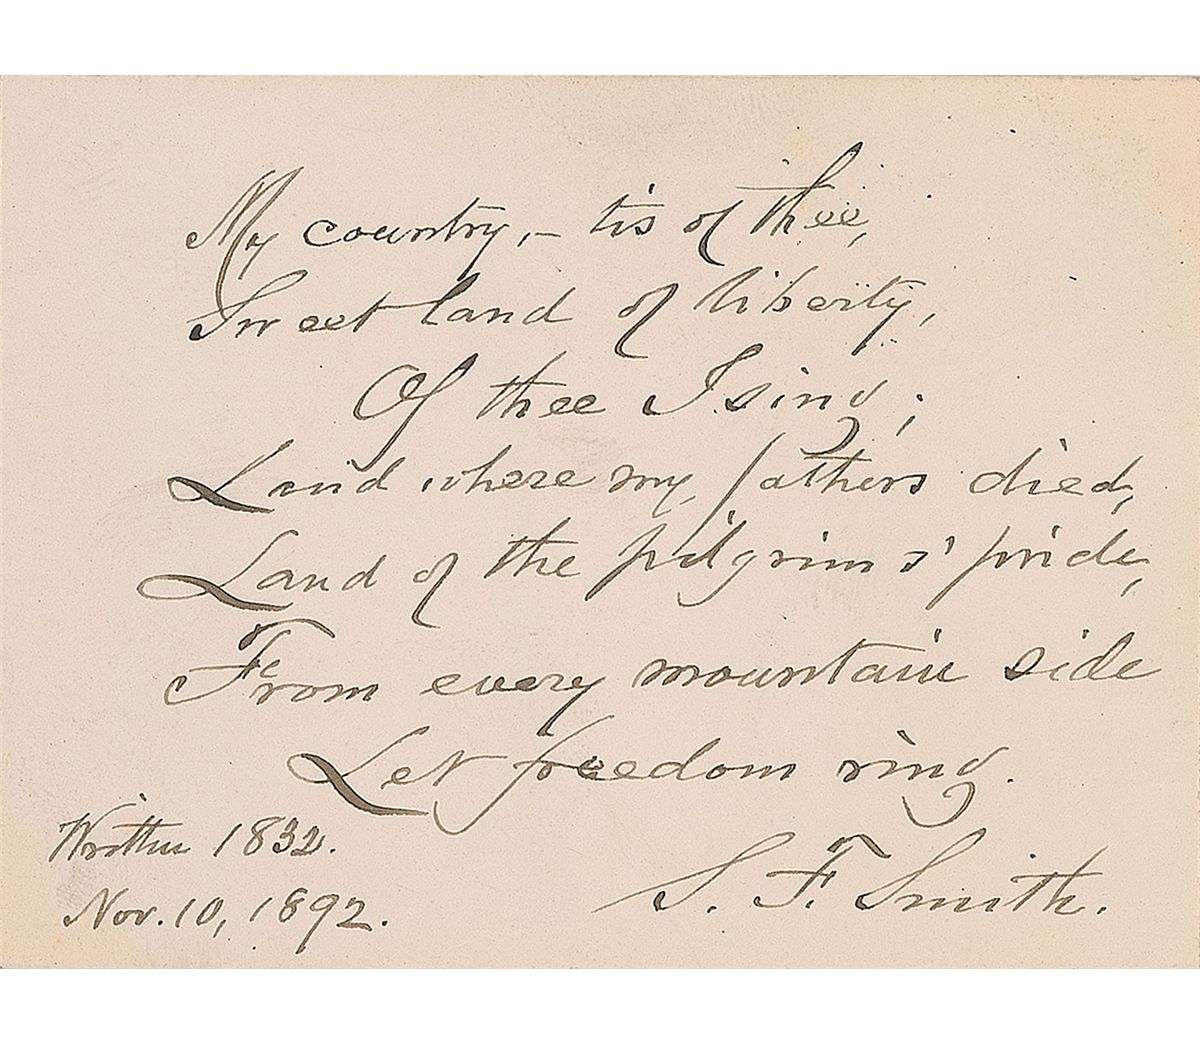 My country, – tis of thee,
Sweet land of liberty,
Of thee I sing;
Land where my fathers died,
Land of the pilgrims' pride,
From every mountain side
Let freedom ring.
Written 1832.
Nov. 10, 1892.
S. F. Smith.